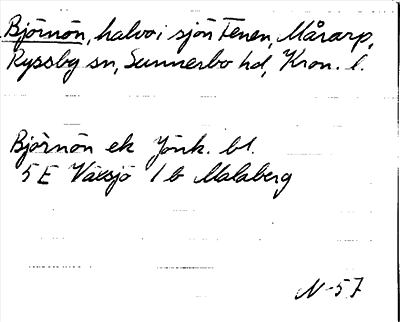 Björnön, halvö i sjön Tenen, Mårarp,
Ryssby sn, Sunnerbo hd, Kron. l.
Björnön ek Jönk. bl.
5 E Växsjö 1 b Malaberg
N-57